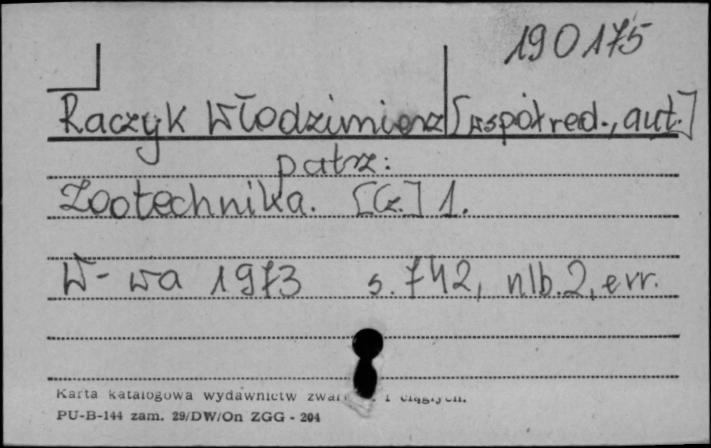 190175
Raczyk Włodzimierz [współred., aut.]
patrz:
Zootechnika. [Cz.] 1.
W-wa 1973 s. 742, nlb. 2, err.
Karta katalogowa wydawnictw i ciągłych.
PU-B-144 zam. 29/DW/On ZGG - 204